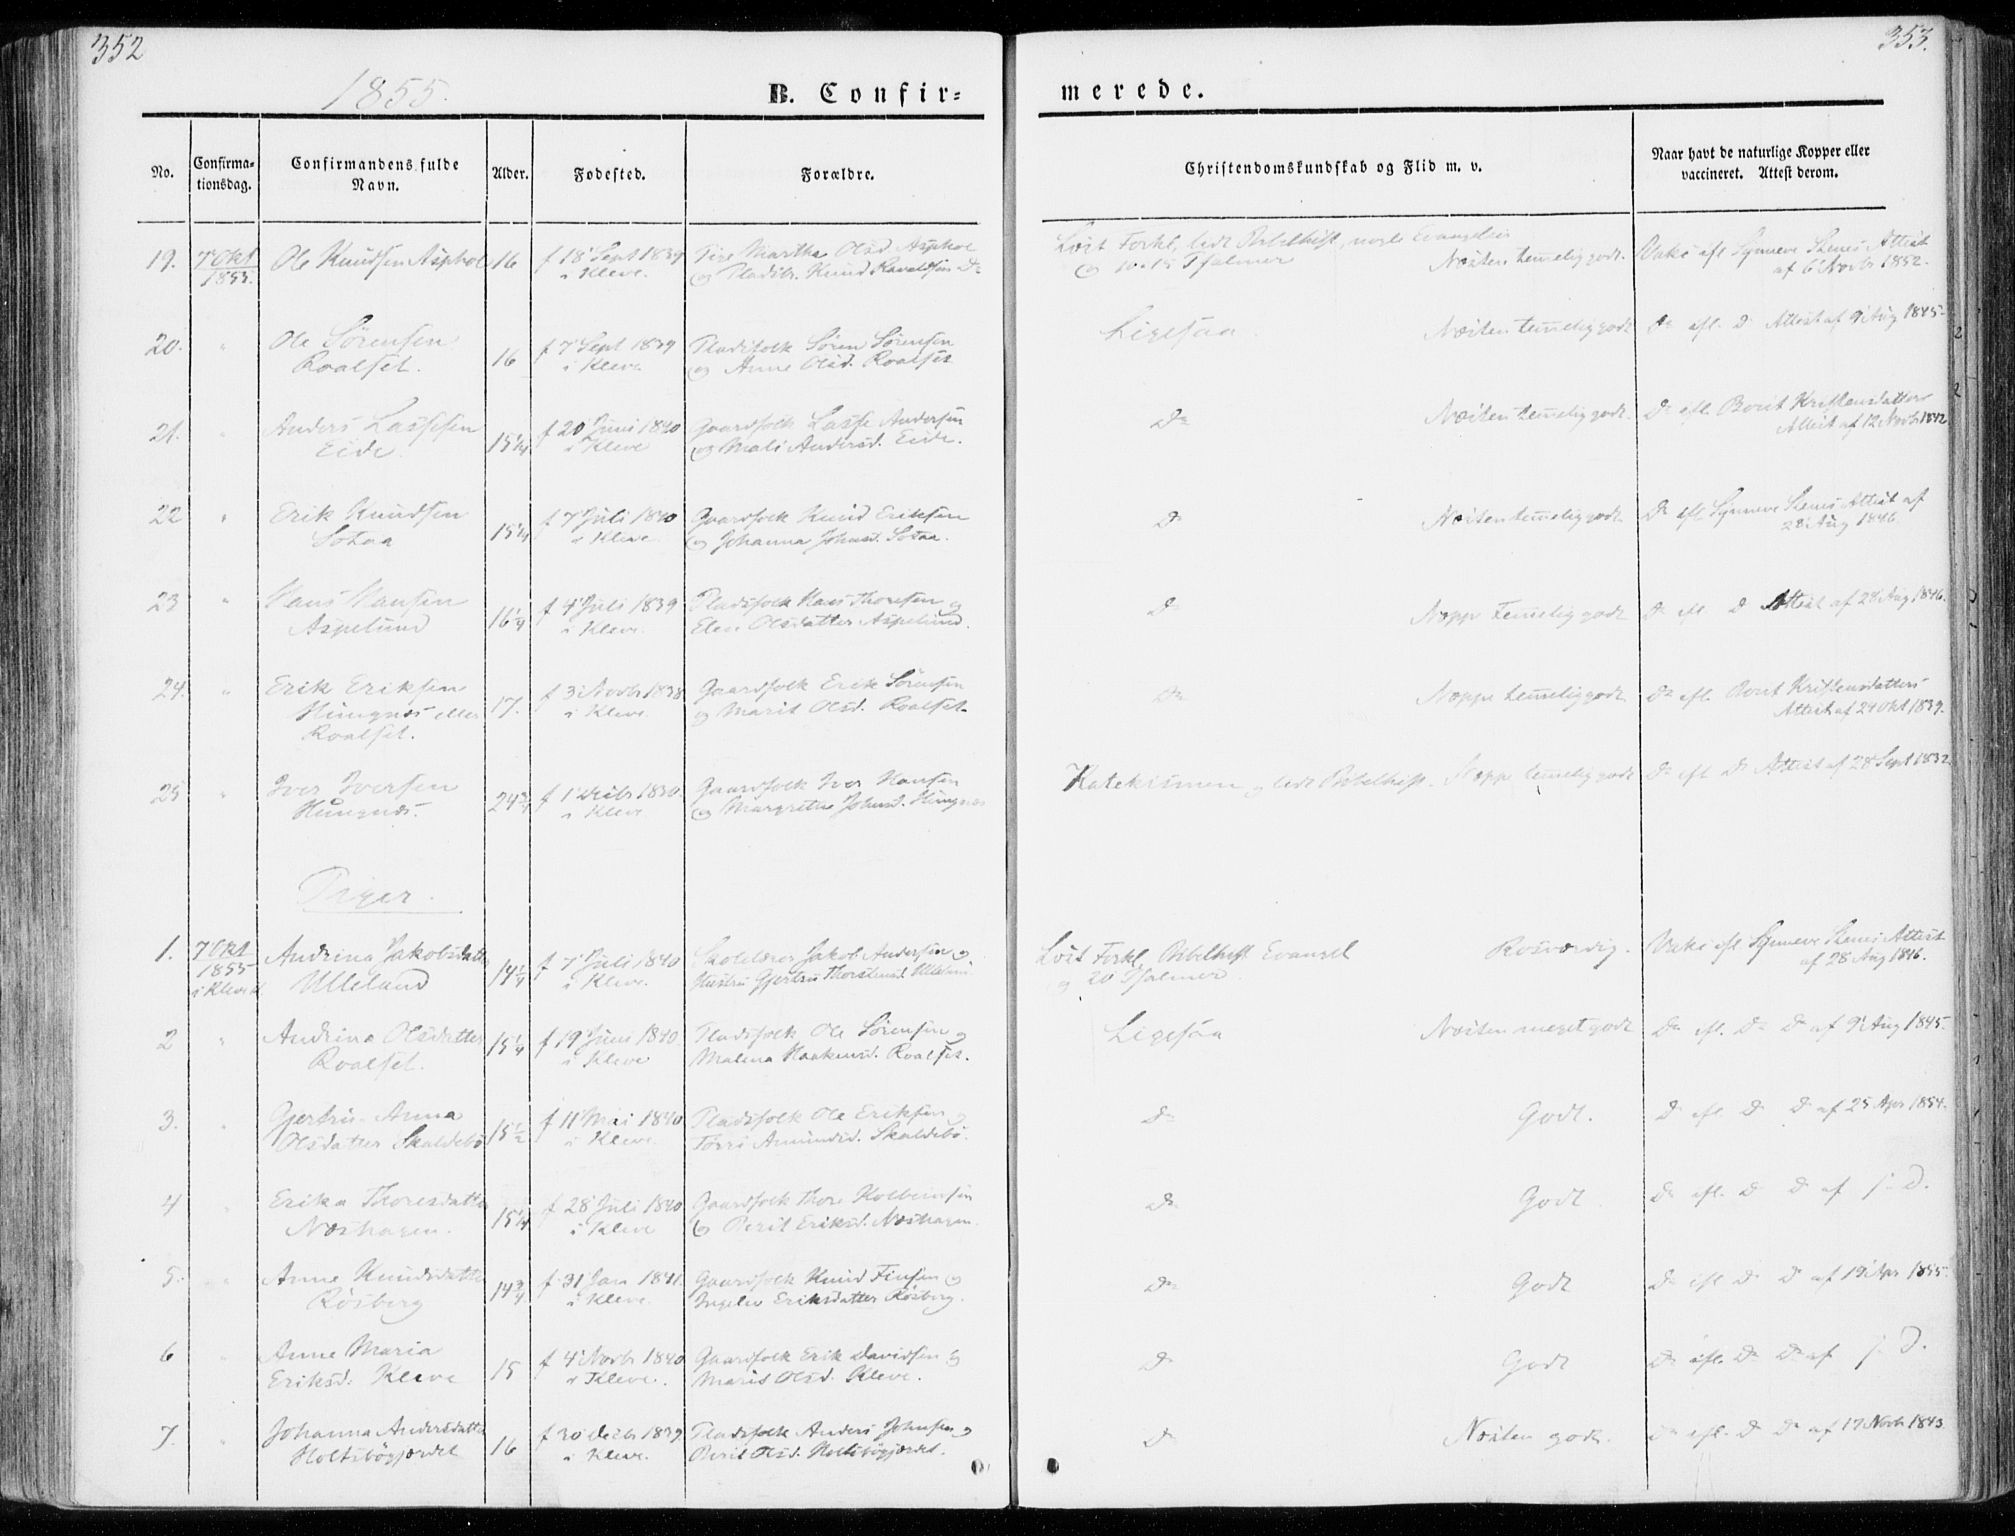 352
353.
1855.
B. Confir=
merede.
No.
Confirma=
tionsdag.
Confirmandens fulde
Navn.
Alder.
Fødested.
Forældre.
Christendomskundskab og Flid m. v.
Naar havt de naturlige Kopper eller
vaccineret. Attest derom.
19. 7 Okt 1855. Ole Knudsen Asphol 16 f 18 Sept 1839 i Kleve. Pige Martha Olsd. Asphol
og Pladsbr. Knud Ravaldsen Do
Læst Forkl, lidt Bibelhist, nogle Evangelier
og 10 a 15 Psalmer Næsten temelig godt. Vaks efl Synneve Stenes Attest
af 6 Novbr 1852.
20. " Ole Sörensen
Roalset. 16 f 7 Sept 1839
i Kleve Pladsfolk Sören Sörensen
og Anne Olsd. Roalset
Ligesaa Næsten temelig godt Do efl. Do Attest af 9 Aug 1845.
21. " Anders Lassesen
Eide. 15 1/4 f 20 Juni 1840
i Kleve Gaardfolk Lasse Andersen
og Mali Andersd. Eide.
Do Næsten temelig godt. Do efl. Borit Kristensdatters
Attest af 12 Novbr 1842
22 " Erik Knudsen
Sotaa 15 1/4 f 7 Juli 1840
i Kleve. Gaardfolk Knud Eriksen
og Johanna Johnsd. Sotaa.
Do Næsten temelig godt Do efl Synneve Stenes Attest af
28 Aug 1846.
23 " Hans Hansen
Aspelund 16 1/4 f 4 Juli 1839
i Kleve. Pladsfolk Hans Thoresen og
Eli Olsdatter Aspelund.
Do Neppe Temelig godt Do efl Do Attest af 28 Aug 1846.
24. " Erik Eriksen
Hungnes eller
Roalset. 17. f 3 Novbr 1838
i Kleve. Gaardfolk Erik Sörensen
og Marit Olsd. Roalset.
Do Neppe temelig godt. Do efl. Borit Kristensdatters
Attest af 24 Okt 1839.
25 " Iver Iversen
Hungnes. 24 3/4 f 1 Decbr 1830.
i Kleve Gaardfolk Iver Hansen
og Margrethe Johnsd. Hungnes
Katekismen og lidt Bibelhist. Neppe temelig godt Do efl Do Attest af 28 Sept 1832
Piger.
1. 7 Okt
1855
i Kleve K Andrina Jakobsdatter
Ulleland 14 1/4 f 7 Juli 1840
i Kleve. Skolelærer Jakob Andersen og
Hustru Gjertru Thorstensd Ulleland.
Læst Forkl, Bibelhist Evangel
og 20 Psalmer. Rosværdig. Vaks efl Synneve Stenes Attest
af 28 Aug 1846.
2 " Andrina Olsdatter
Roalset. 15 1/4 f 19 Juni 1840
i Kleve Pladsfolk Ole Sörensen og
Malena Haakensd. Roalset.
Ligesaa Næsten meget godt Do efl. Do Do af 9 Aug 1845.
3. " Gjertru-Anna
Olsdatter Skaldebö 15 1/2 f 11 Mai 1840
i Kleve. Pladsfolk Ole Eriksen og
Torri Amundsd. Skaldebö.
Do Godt. Do efl Do Do af 25 Apr 1854.
4 " Erika Thoresdatter
Næshagen. 15 1/4 f 28 Juli 1840
i Kleve Gaardfolk Thore Kolbeinsen
og Berit Eriksd. Næshagen.
Do Godt Do efl. Do Do af s. D.
5. " Anne Knudsdatter
Rösberg 14 3/4 f 31 Jan 1841
i Kleve. Gaardfolk Knud Finsen og
Ingeleu Eriksdatter Rösberg.
Do Godt Do efl Do Do af 19 Apr 1855.
6 " Anne Maria
Eriksd. Kleve 15 f 4 Novbr 1840
i Kleve. Gaardfolk Erik Davidsen og
Marit Olsd. Kleve.
Do Godt Do efl. Do Do af s. D.
7. " Johanna Andersdatter
Holtsbögjærdet 16 f 30 Decbr 1839
i Kleve. Pladsfolk Anders Johnsen og
Berit Olsd. Holtsbögjærdet.
Do Næsten godt. Do efl. Do Do af 17 Novbr 1843